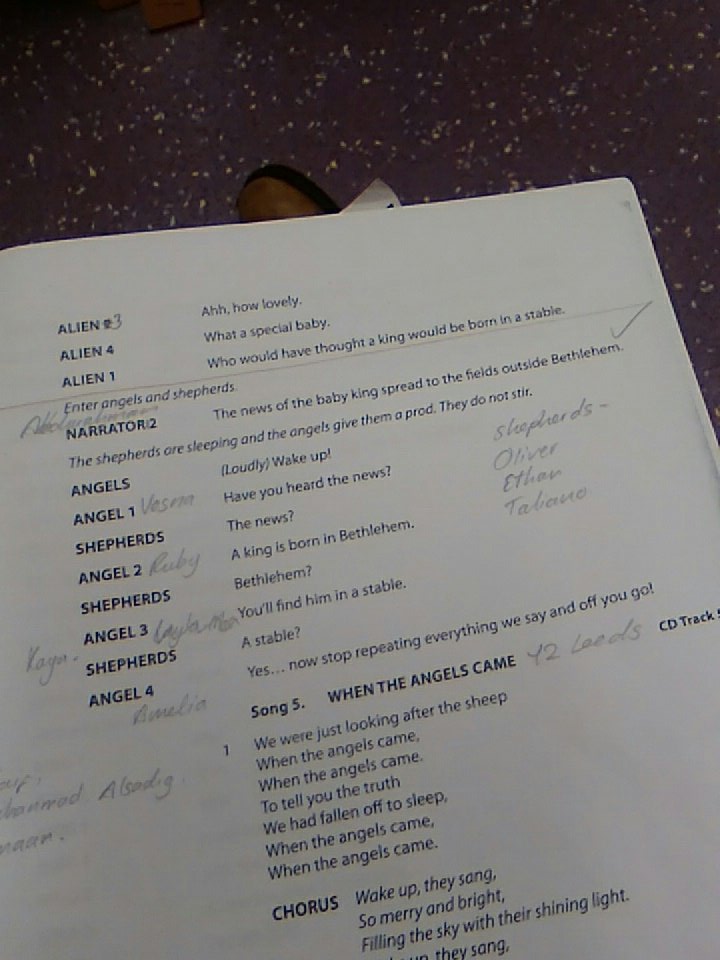 ALIEN 3 Ahh, how lovely.
ALIEN 4 What a special baby.
ALIEN 1 Who would have thought a king would be born in a stable.
Enter angels and shepherds.
Abdurahman
NARRATOR 2 The news of the baby king spread to the fields outside Bethlehem.
The shepherds are sleeping and the angels give them a prod. They do not stir.
ANGELS (Loudly) Wake up!
ANGEL 1 Vesna Have you heard the news?
SHEPHERDS The news?
ANGEL 2 Ruby A king is born in Bethlehem.
SHEPHERDS Bethlehem?
ANGEL 3 You'll find him in a stable.
SHEPHERDS A stable?
ANGEL 4 Yes... now stop repeating everything we say and off you go!
Amelia
Shepherds -
Oliver
Ethan
Taliano
Song 5. WHEN THE ANGELS CAME Y2 Leeds CD Track
1 We were just looking after the sheep
When the angels came,
When the angels came.
To tell you the truth
We had fallen off to sleep,
When the angels came,
When the angels came.
Alsadig.
CHORUS Wake up, they sang,
So merry and bright,
Filling the sky with their shining light.
up, they sang,